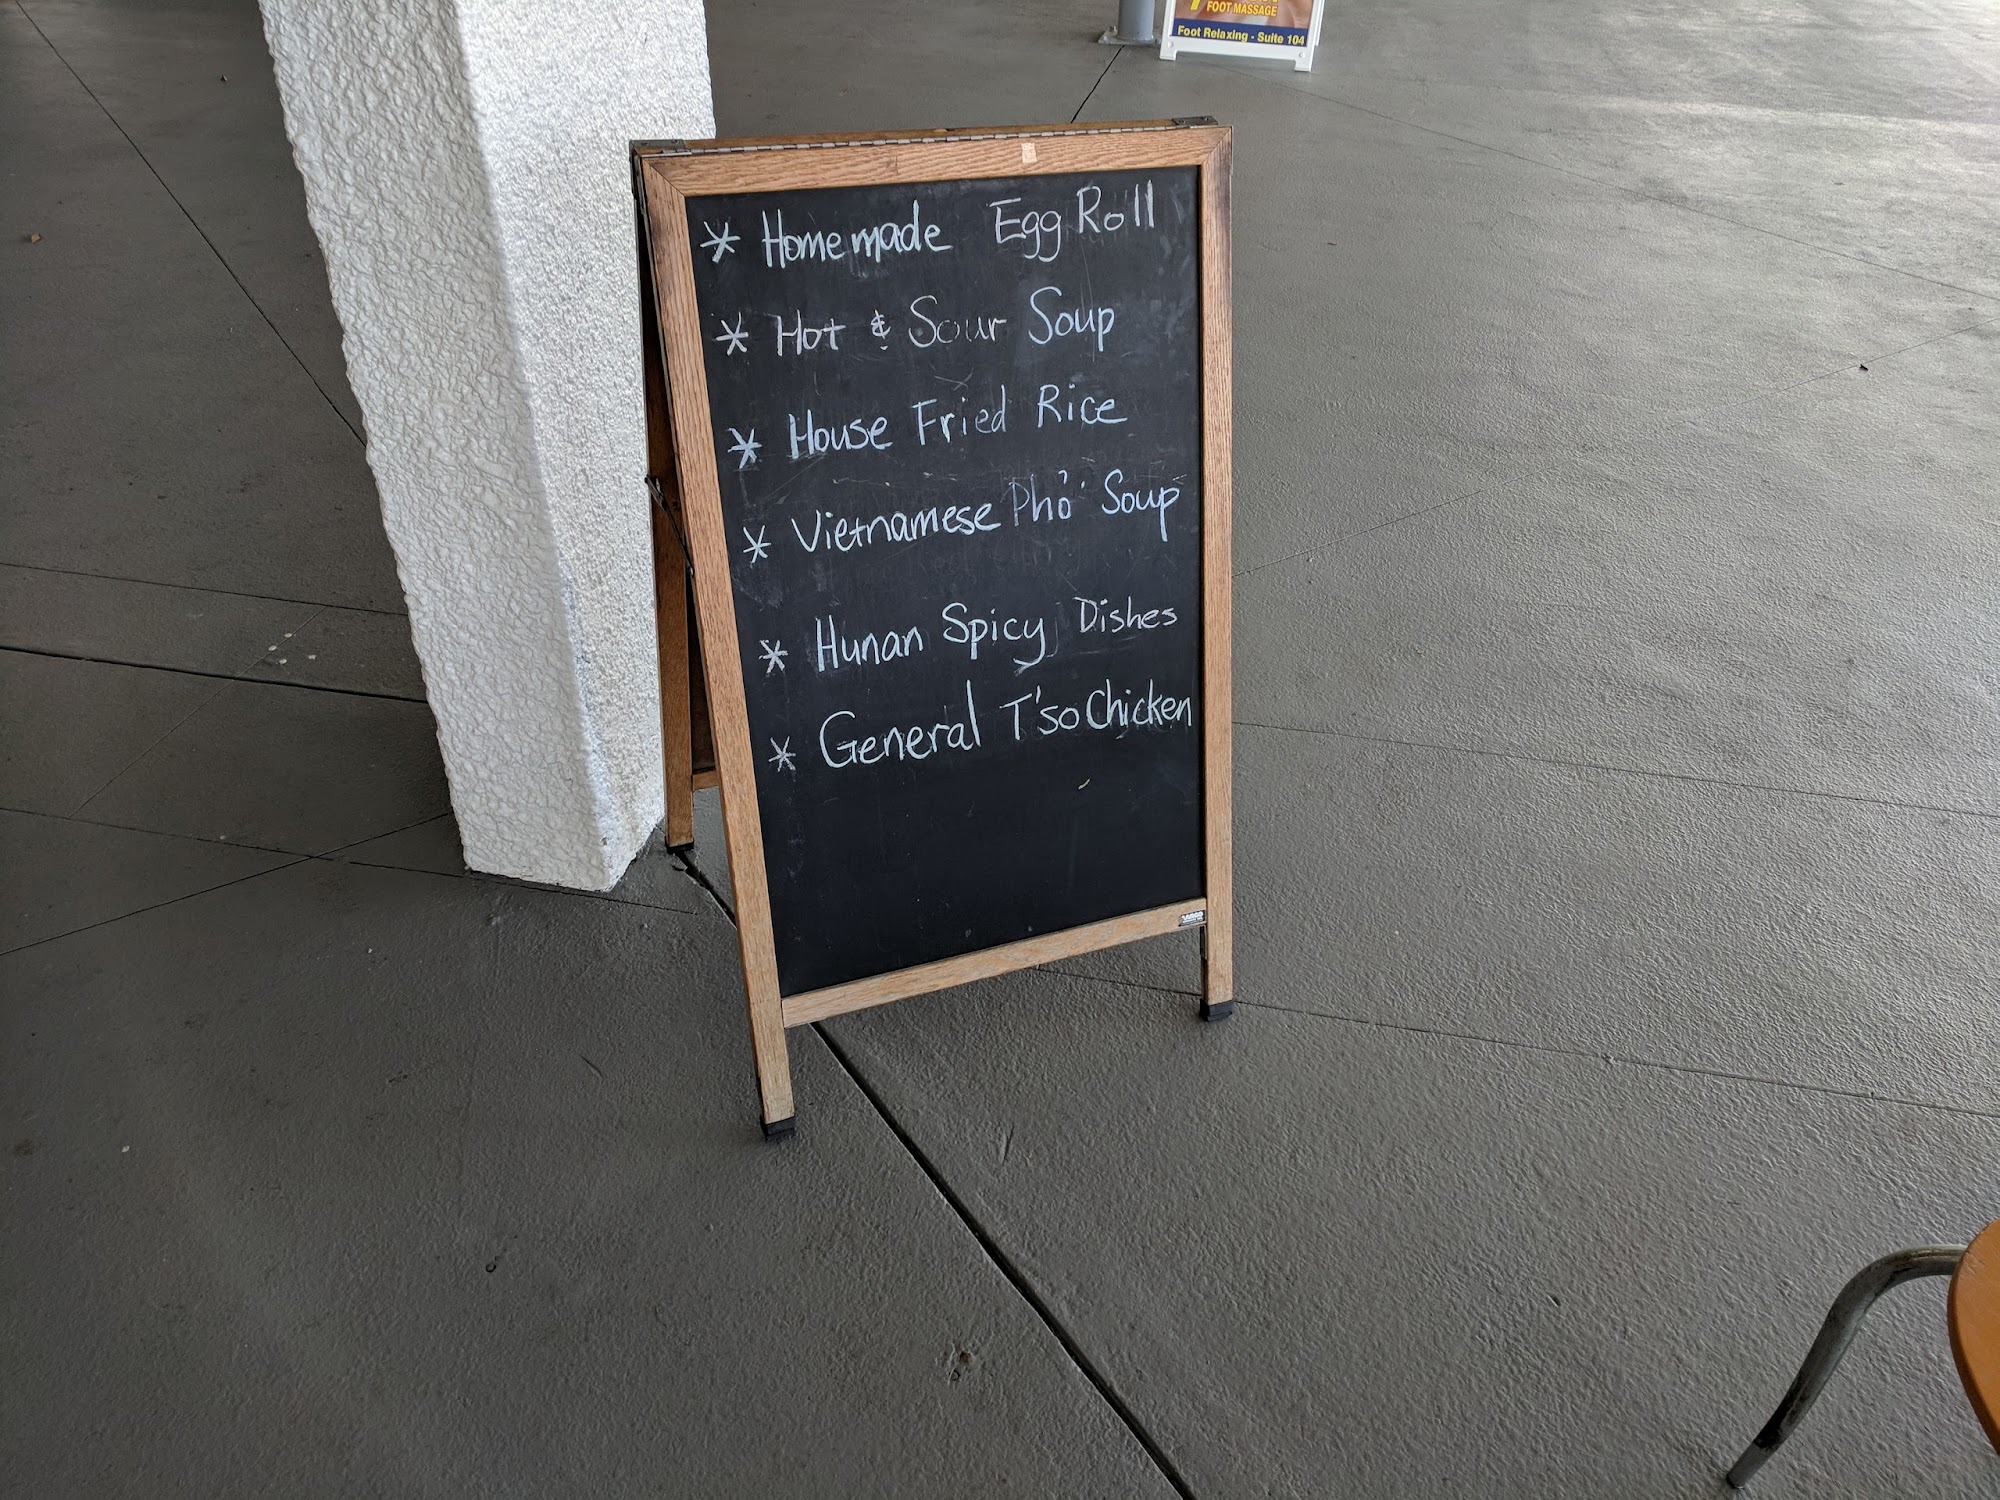 FOOT MASSAGE
Foot Relaxing - Suite 104
* Homemade Egg Roll
* Hot & Sour Soup
* House Fried Rice
* Vietnamese Phở Soup
* Hunan Spicy Dishes
* General T'so Chicken